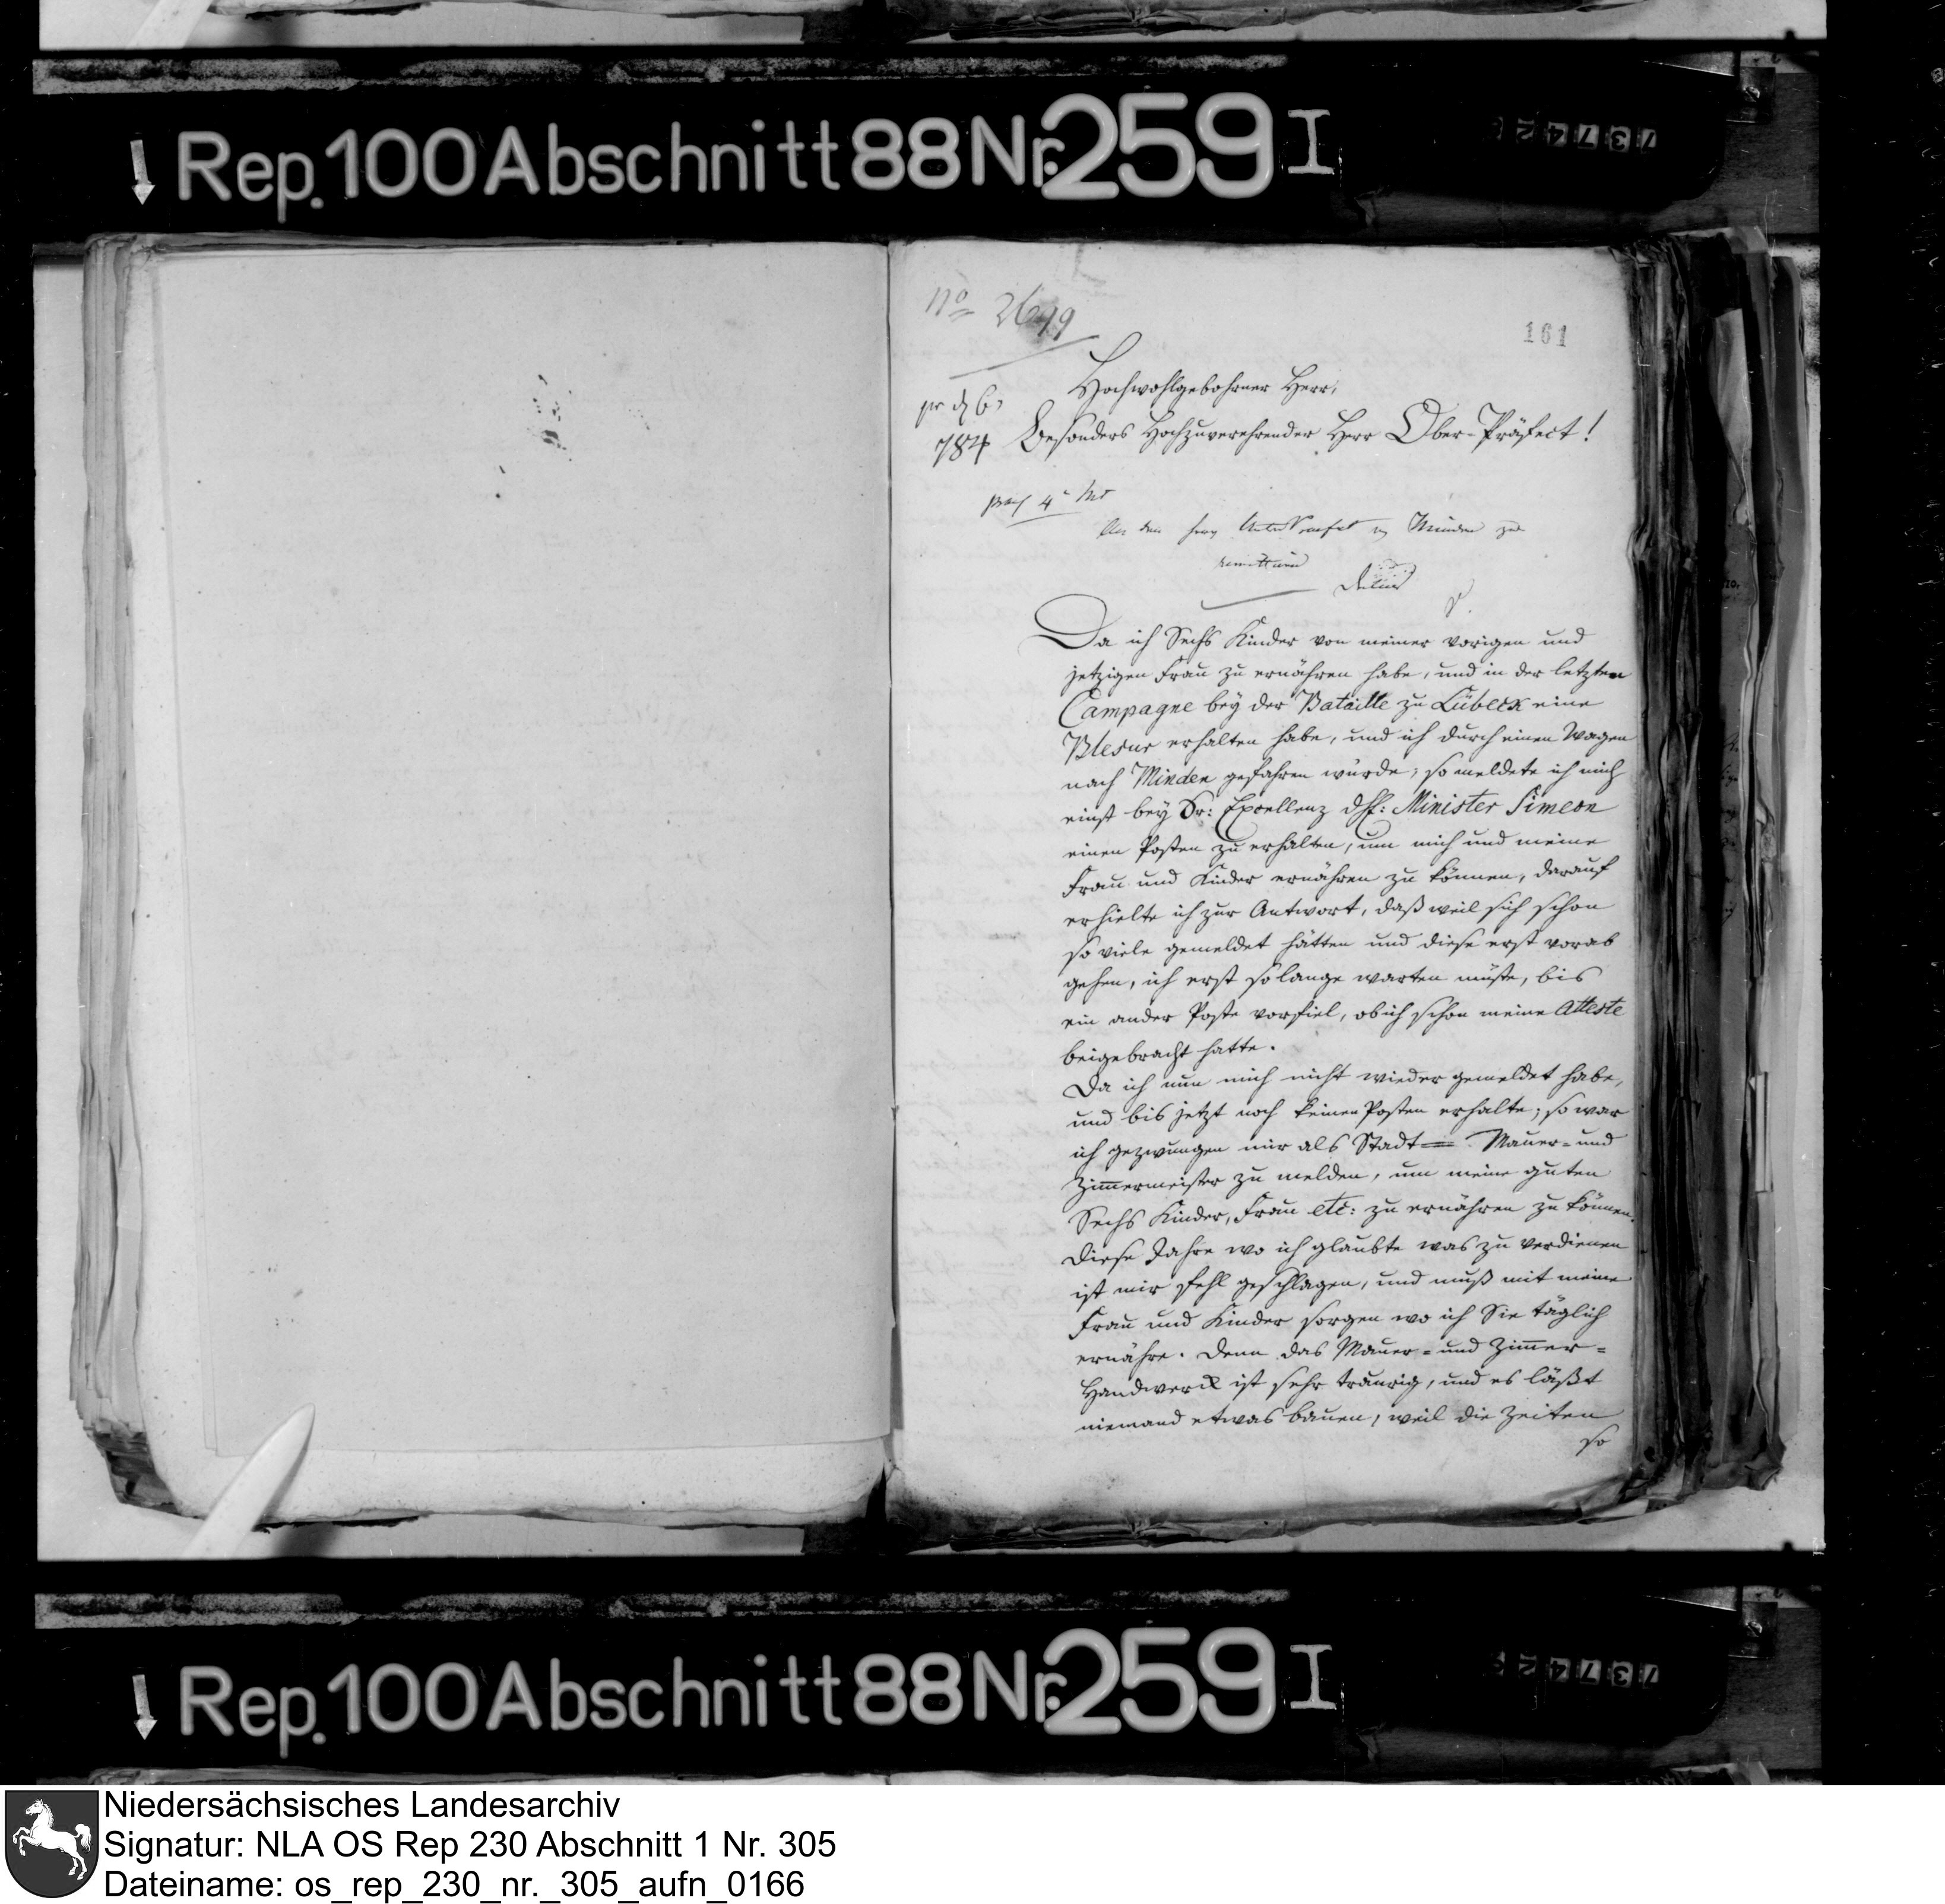 Rep. 100 Abschnitt 88 Nr. 259 I
73742
No 2619
161
Hochwohlgebohrner Herr,
784 Besonders Hochzuverehrender Herr Ober-Präfect!
An den Herrn Unter Praefect zu Minden zu
remittiren
Delius
Da ich Sechs Kinder von meiner vorigen und
jetzigen Frau zu ernähren habe, und in der letzten
Campagne bey der Bataille zu Lübeck eine
Blesur erhalten habe, und ich durch einen Wagen
nach Minden gefahren wurde; so meldete ich mich
einst bey Sr: Excellenz dH: Minister Simeon
einen Posten zu erhalten, um mich und meine
Frau und Kinder ernähren zu können, darauf
erhielte ich zur Antwort, daß weil sich schon
so viele gemeldet hätten und diese erst vorab
gehen, ich erst so lange warten müste, bis
ein ander Poste vorfiel, ob ich schon meine Atteste
beigebracht hatte.
Da ich nun mich nicht wieder gemeldet habe,
und bis jetzt noch keinen Posten erhalte; so war
ich gezwungen mir als Stadt= Mauer- und
Zimmermeister zu melden, um meine guten
Sechs Kinder, Frau etc: zu ernähren zu können.
Diese Jahre wo ich glaubte was zu verdienen
ist mir fehl geschlagen, und muß mit meine
Frau und Kinder sorgen wo ich Sie täglich
ernähre. Denn das Mauer- und Zimmer-
Handwerck ist sehr traurig, und es läßt
niemand etwas bauen, weil die Zeiten
so
Rep. 100 Abschnitt 88 Nr. 259 I
73742
Niedersächsisches Landesarchiv
Signatur: NLA OS Rep 230 Abschnitt 1 Nr. 305
Dateiname: os_rep_230_nr._305_aufn_0166